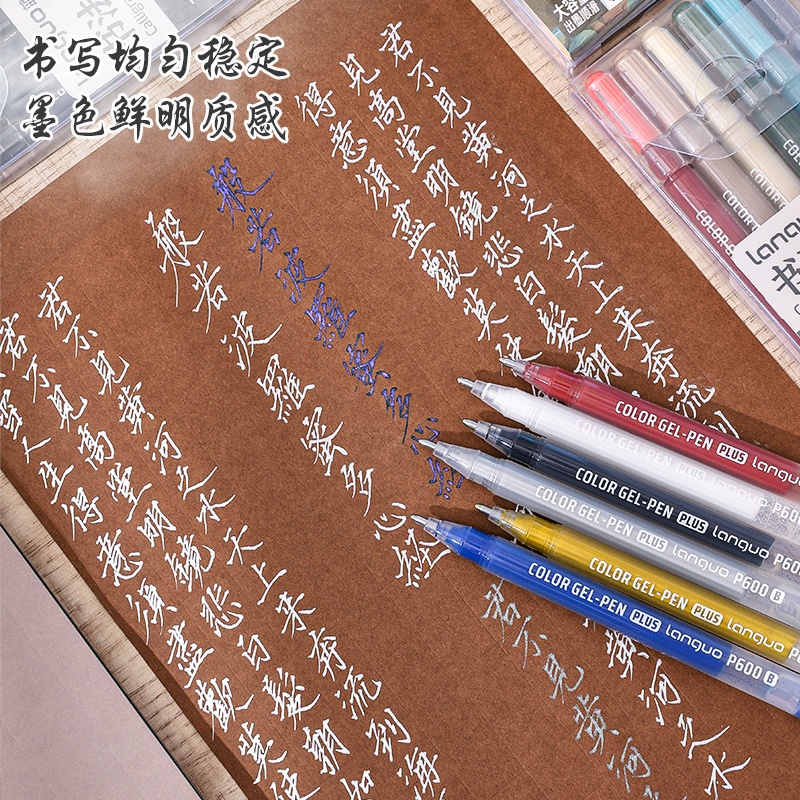 书写均匀稳定
墨色鲜明质感
大容量
出墨顺滑
languo
君不見黄河之水天上来奔流到
見高堂明鏡悲白髮朝
得意須盡歡莫使
般若波羅蜜多心經
般若波羅蜜多心経
君不見黄河之水天上来奔流到海
不見高堂明鏡悲白髮朝如
人生得意須盡歡莫使
COLOR GEL-PEN PLUS languo
COLOR GEL-PEN PLUS languo P60
COLOR GEL-PEN PLUS languo P600
COLOR GEL-PEN PLUS languo P600 B
COLOR GEL-PEN PLUS languo P60
COLOR GEL-PEN PLUS languo P600 B
君不見黄河
黄河之水
COLOR G
COLOR GE
COLOR
COLOR
languo
书法